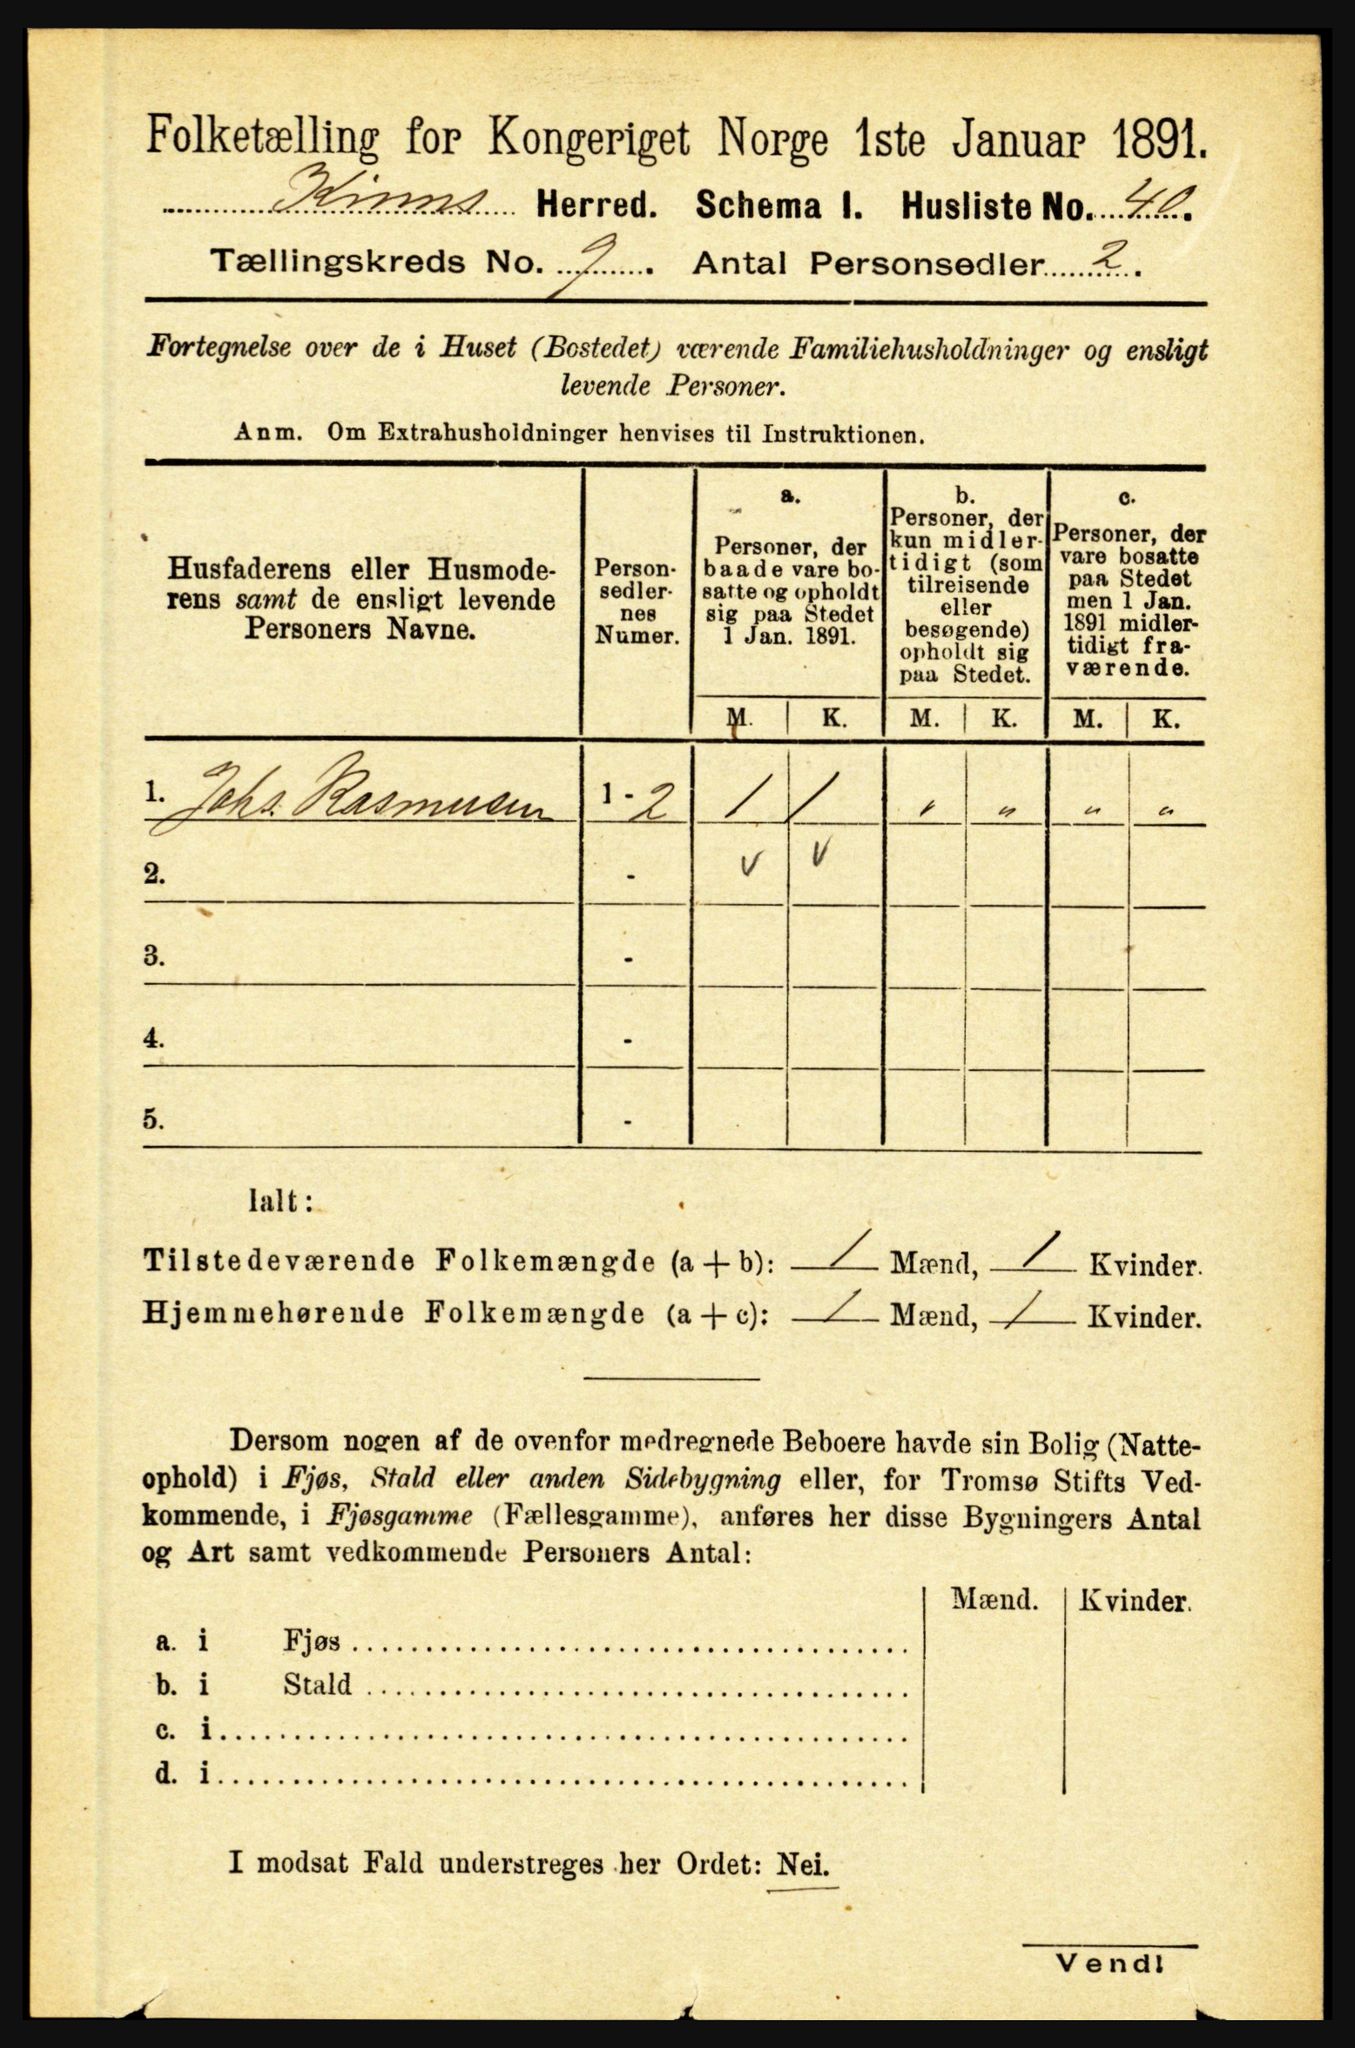 Folketælling for Kongeriget Norge 1ste Januar 1891.
Kinns Herred. Schema I. Husliste No. 40.
Tællingskreds No. 9. Antal Personsedler 2.
Fortegnelse over de i Huset (Bostedet) værende Familiehusholdninger og ensligt
levende Personer.
Anm. Om Extrahusholdninger henvises til Instruktionen.
Husfaderens eller Husmode-
rens samt de ensligt levende
Personers Navne.
Person-
sedler-
nes
Numer.
a.
Personer, der
baade vare bo-
satte og opholdt
sig paa Stedet
1 Jan. 1891.
b.
Personer, der
kun midler-
tidigt (som
tilreisende
eller
besøgende)
opholdt sig
paa Stedet.
c.
Personer, der
vare bosatte
paa Stedet
men 1 Jan.
1891 midler-
tidigt fra-
værende.
M. K. M. K. M. K.
1. Johs. Rasmusen 1 - 2 1 1 " " " "
2. - v v
3. -
4. -
5. -
Ialt:
Tilstedeværende Folkemængde (a + b): 1 Mænd, 1 Kvinder.
Hjemmehørende Folkemængde (a + c): 1 Mænd, 1 Kvinder.
Dersom nogen af de ovenfor medregnede Beboere havde sin Bolig (Natte-
ophold) i Fjøs, Stald eller anden Sidebygning eller, for Tromsø Stifts Ved-
kommende, i Fjøsgamme (Fællesgamme), anføres her disse Bygningers Antal
og Art samt vedkommende Personers Antal:
Mænd. Kvinder.
a. i Fjøs
b. i Stald
c. i
d. i
I modsat Fald understreges her Ordet: Nei.
Vend!